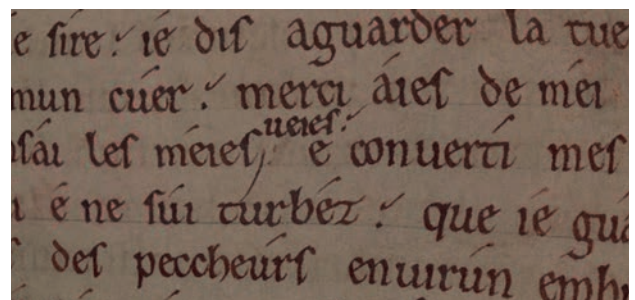 e ſire: ié diſ aguarder la tue
mun cúer: merci áieſ de méi
ſái leſ méieſ ueieſ: é conuerti meſ
é ne ſúi turbéz: que ié guá
deſ peccheúrſ enuirún emb